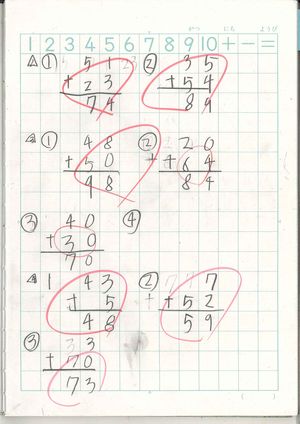 がつ にち ようび
1 2 3 4 5 6 7 8 9 10 + − =
① 51 ② 35
+23 +54
74 89
① 48 ② 20
+50 +64
98 84
③ 40 ④
+30
70
1 43 ② 7
+ 5 +52
48 59
③ 3
+70
73
( )